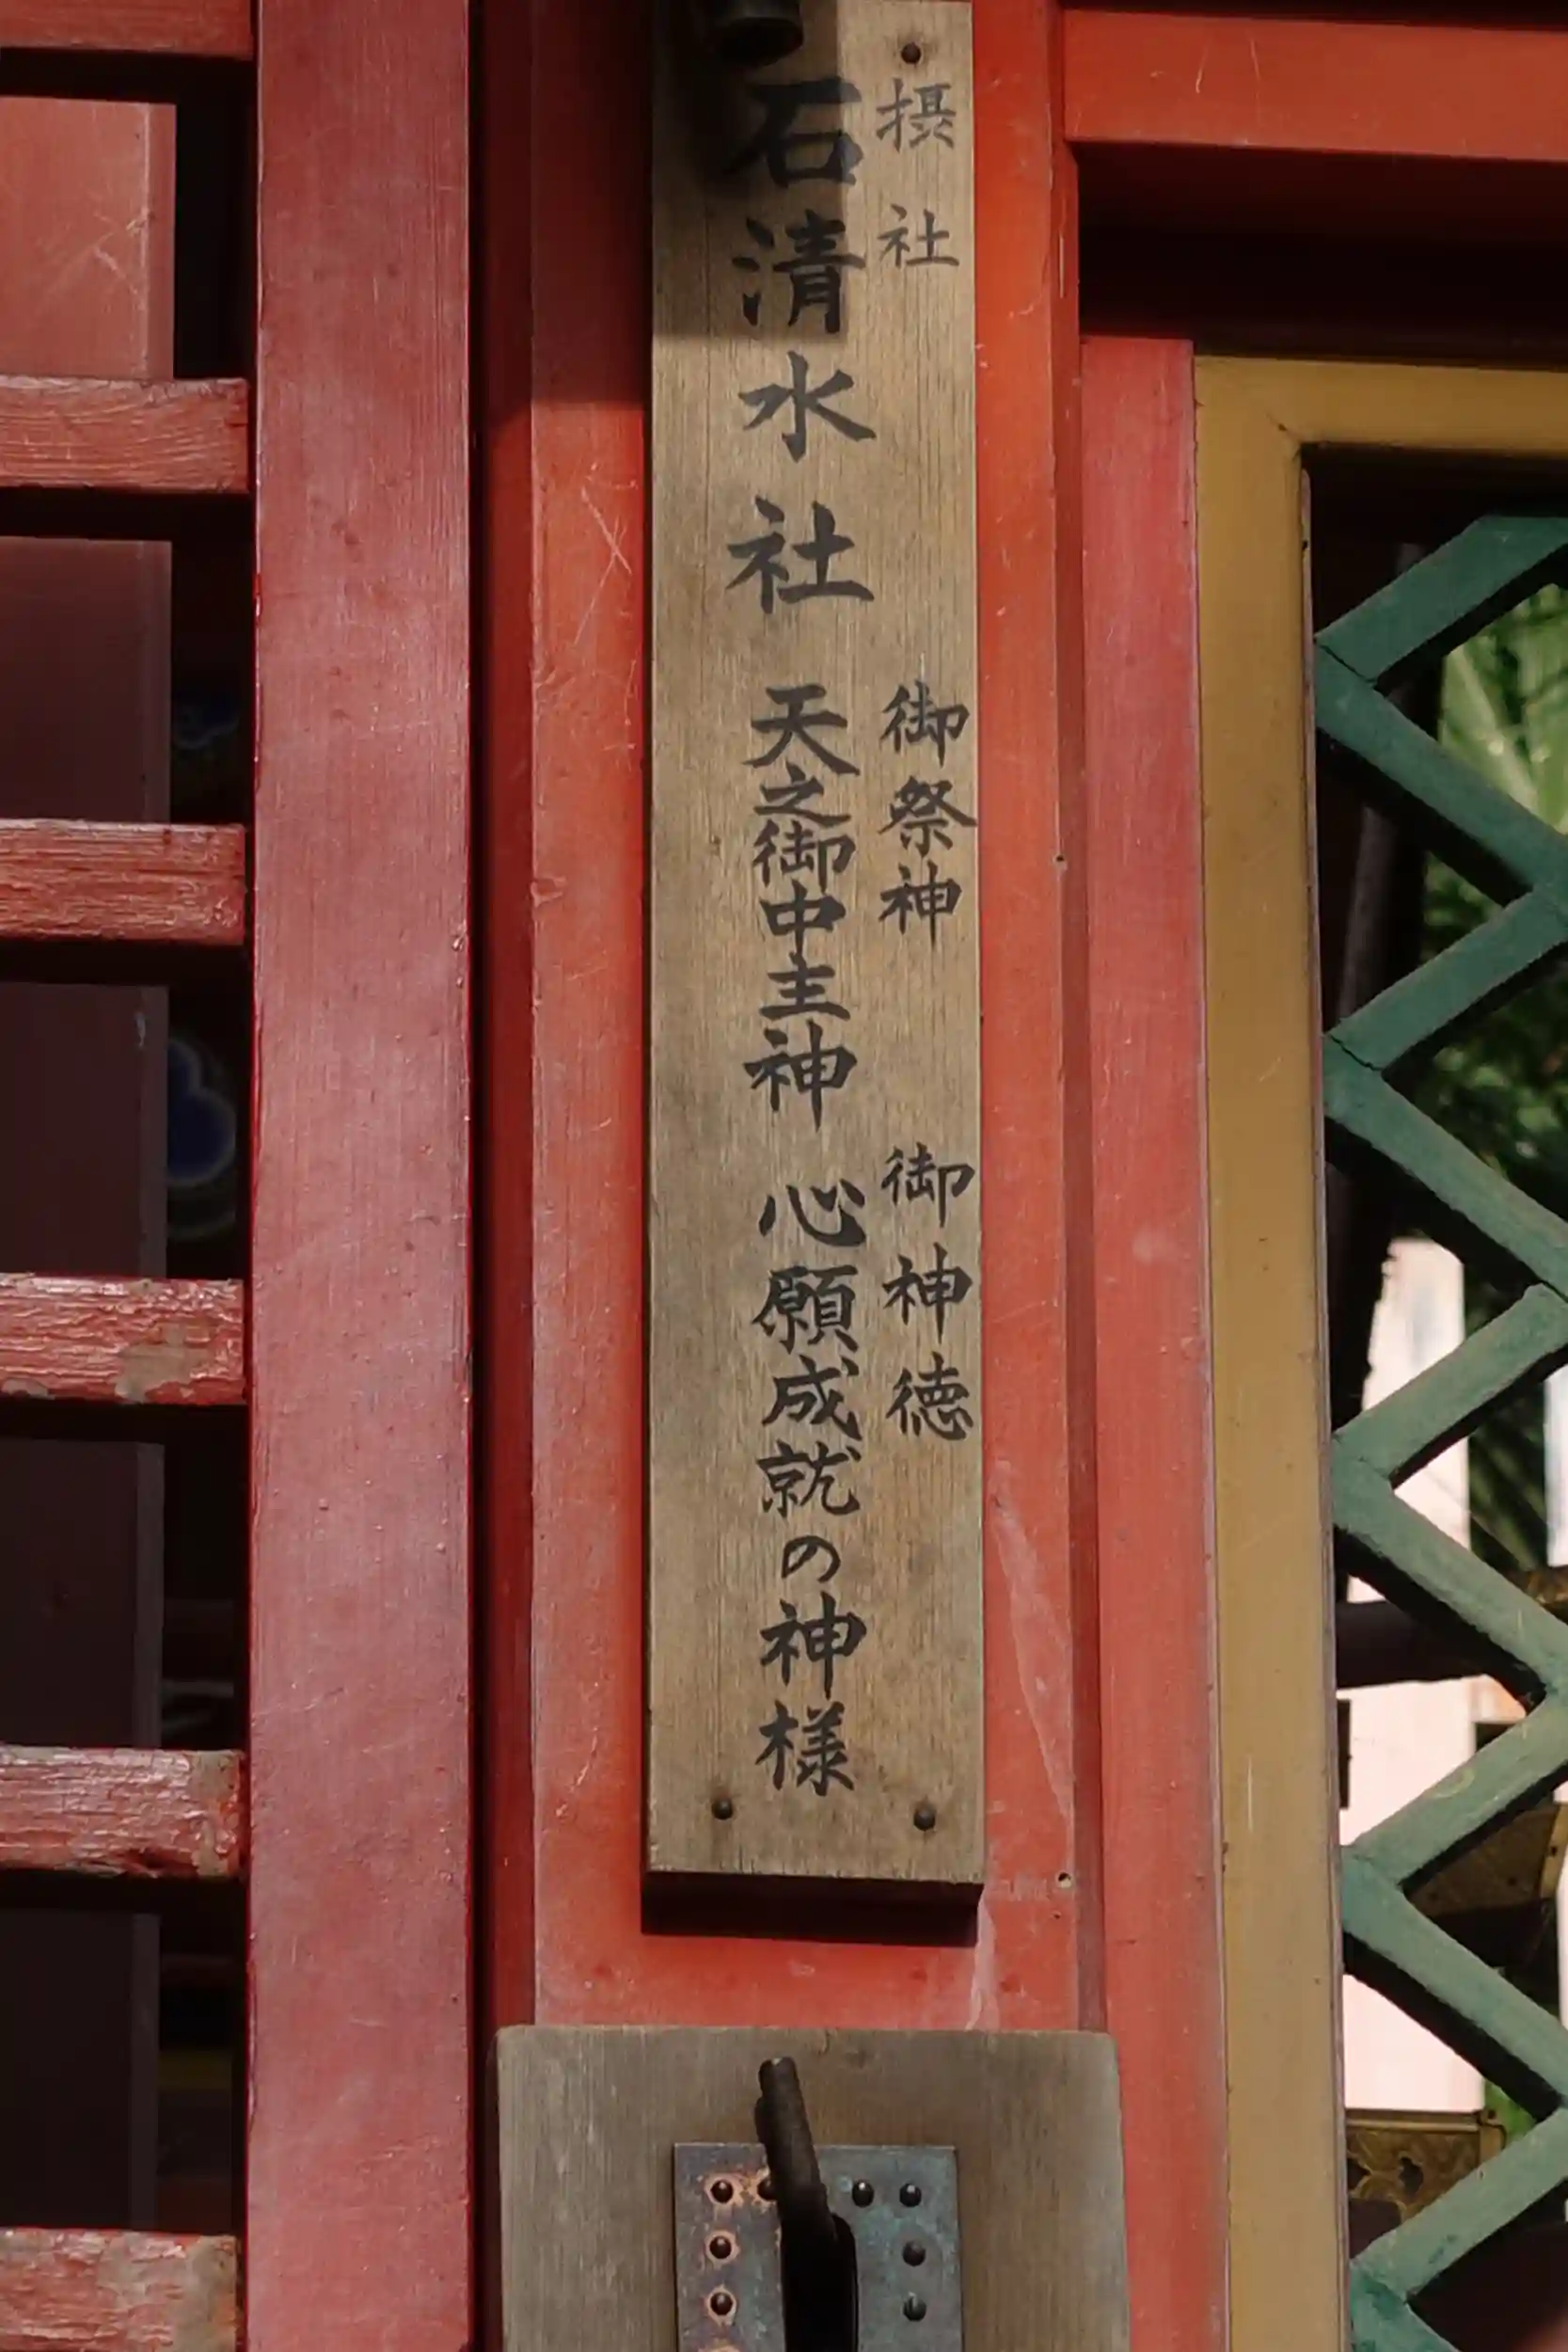 摂社
御祭神
御神徳
石清水社
天之御中主神
心願成就の神様